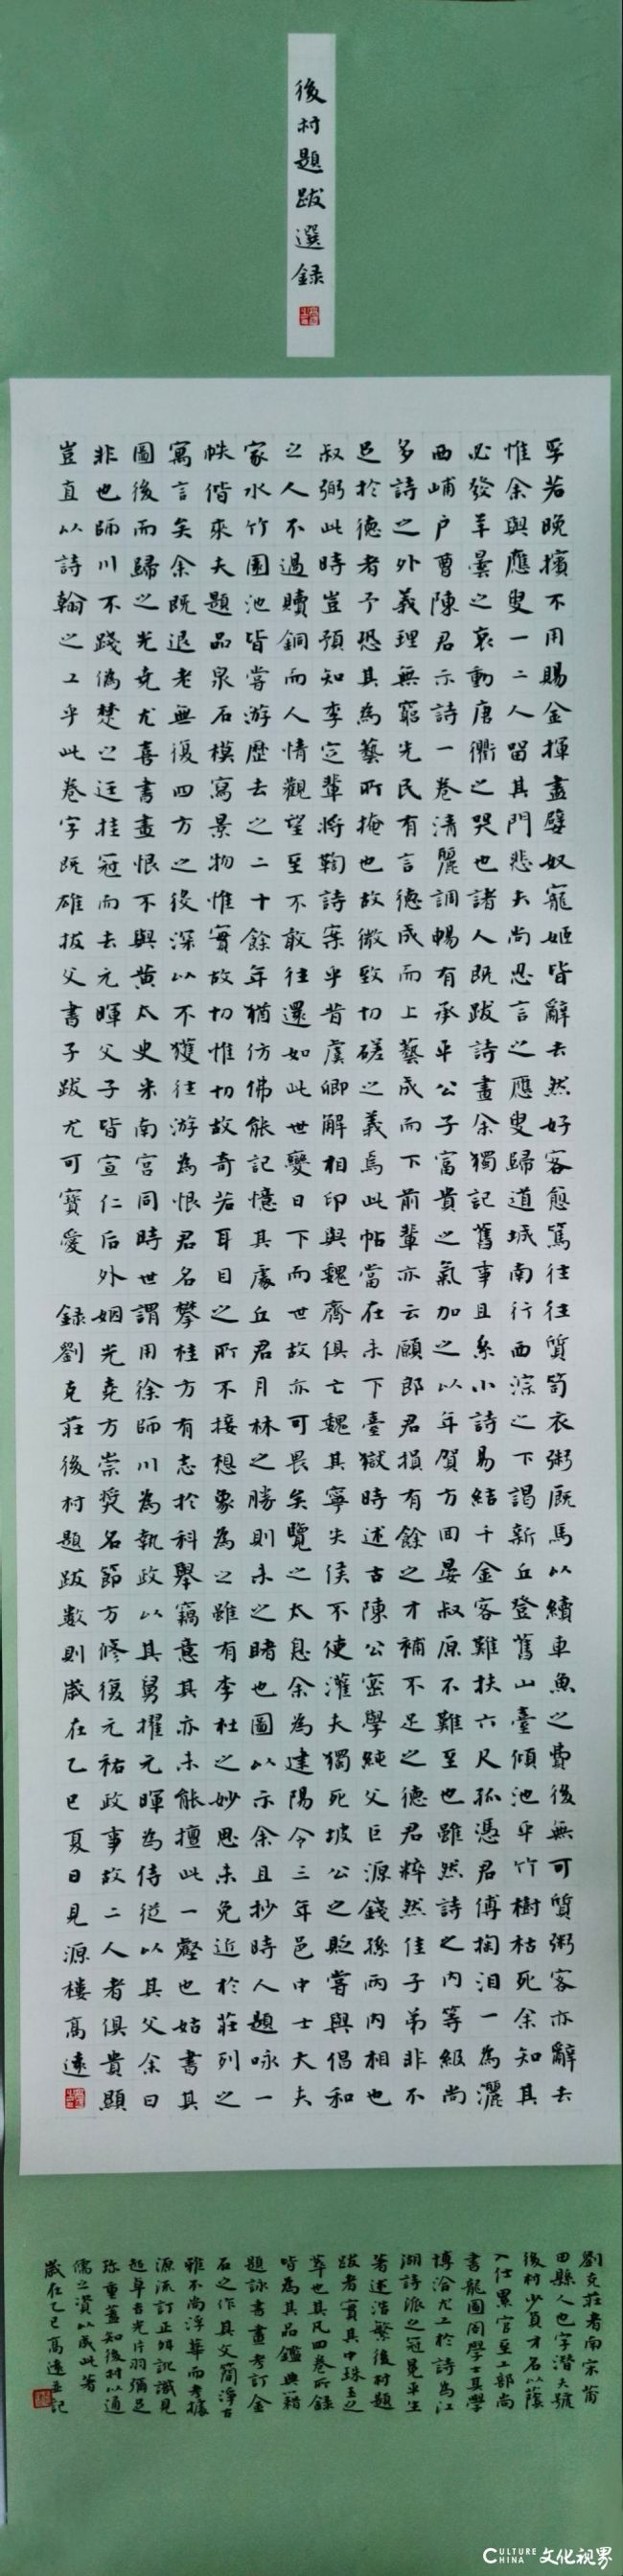 後村題跋選録
孚若晚擯不用賜金揮盡嬖奴寵姬皆辭去然好客愈篤往往質笥衣粥厩馬以續車魚之費後無可質粥客亦辭去
惟余與應叟一二人留其門悲夫尚忍言之應叟歸道城南行西淙之下謁新丘登舊山臺傾池平竹樹枯死余知其
必發羊曇之哀動唐衢之哭也諸人既跋詩畫余獨記舊事且系小詩易結千金客難扶六尺孤憑君傅掬泪一為灑
西峬户曹陳君示詩一卷清麗調暢有承平公子富貴之氣加之以年賀方回晏叔原不難至也雖然詩之内等級尚
多詩之外義理無窮先民有言德成而上藝成而下前輩亦云願郎君損有餘之才補不足之德君粹然佳子弟非不
足於德者予恐其為藝所掩也故微致切磋之義焉此帖當在未下臺獄時述古陳公密學純父巨源錢孫兩内相也
叔弼此時豈預知李定輩將鞫詩案乎昔虞卿解相印與魏齊俱亡魏其寧失侯不使灌夫獨死坡公之貶嘗與倡和
之人不過贖銅而人情觀望至不敢往還如此世變日下而世故亦可畏矣覽之太息余為建陽令三年邑中士大夫
家水竹園池皆嘗游歷去之二十餘年猶仿佛能記憶其處丘君月林之勝則未之睹也圖以示余且抄時人題咏一
帙偕來夫題品泉石模寫景物惟實故切惟切故奇若耳目之所不接想象為之雖有李杜之妙思未免近於莊列之
寓言矣余既退老無復四方之役深以不獲往游為恨君名攀桂方有志於科舉竊意其亦未能擅此一壑也姑書其
圖後而歸之光堯尤喜書畫恨不與黄太史米南宫同時世謂用徐師川為執政以其舅擢元暉為侍從以其父余曰
非也師川不踐僞楚之廷挂冠而去元暉父子皆宣仁后外姻光堯方崇奬名節方修復元祐政事故二人者俱貴顯
豈直以詩翰之工乎此卷字既雄拔父書子跋尤可寳愛 録劉克莊後村題跋數則歲在乙巳夏日見源樓高遠
劉克莊者南宋莆
田縣人也字潛夫號
後村少負才名以蔭
入仕累官至工部尚
書龍圖閣學士其學
博洽尤工於詩為江
湖詩派之冠冕平生
著述浩繁後村題
跋者實其中珠玉之
萃也其凡四卷所録
皆為其品鑑典籍
題詠書畫考訂金
石之作其文簡淨古
雅不尚浮華而考據
源流訂正舛訛識見
超卓吉光片羽彌足
珍重蓋知後村以通
儒之資以成此著
歲在乙巳高遠并記
CULTURE CHINA 文化視界